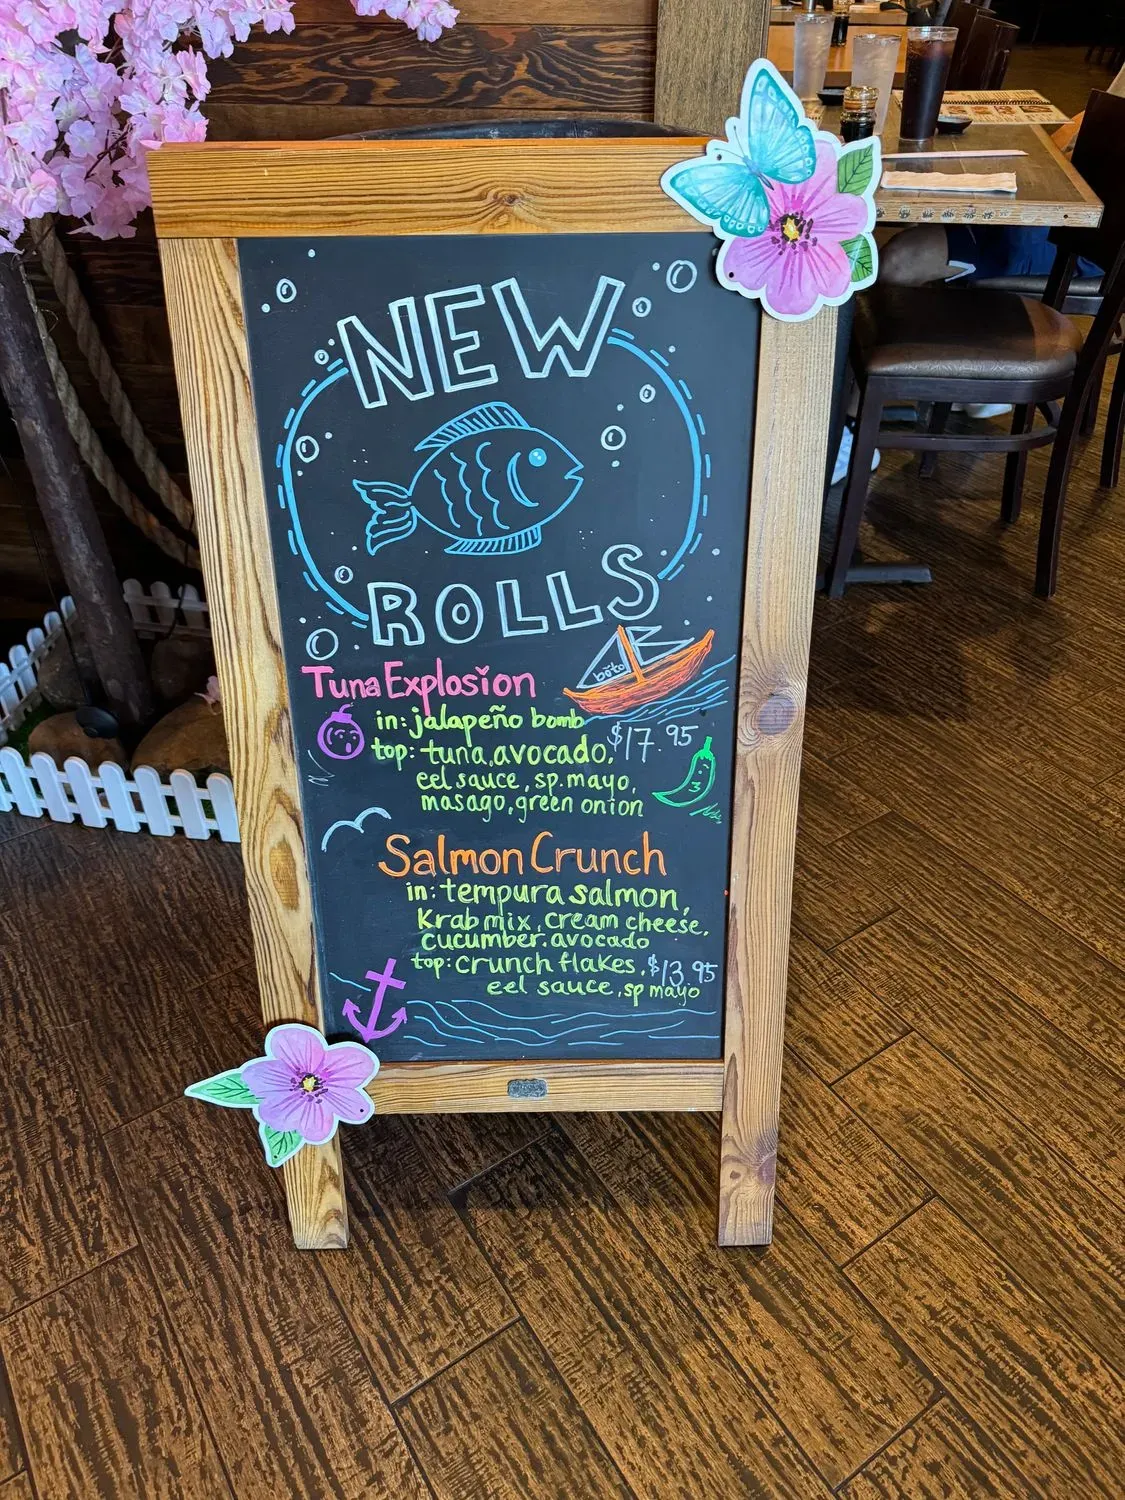 NEW
ROLLS
bōto
Tuna Explosion
in: jalapeño bomb
top: tuna, avocado, $17.95
eel sauce, sp. mayo,
masago, green onion
Salmon Crunch
in: tempura salmon,
Krab mix, cream cheese,
cucumber. avocado
top: crunch flakes, $13.95
eel sauce, sp mayo